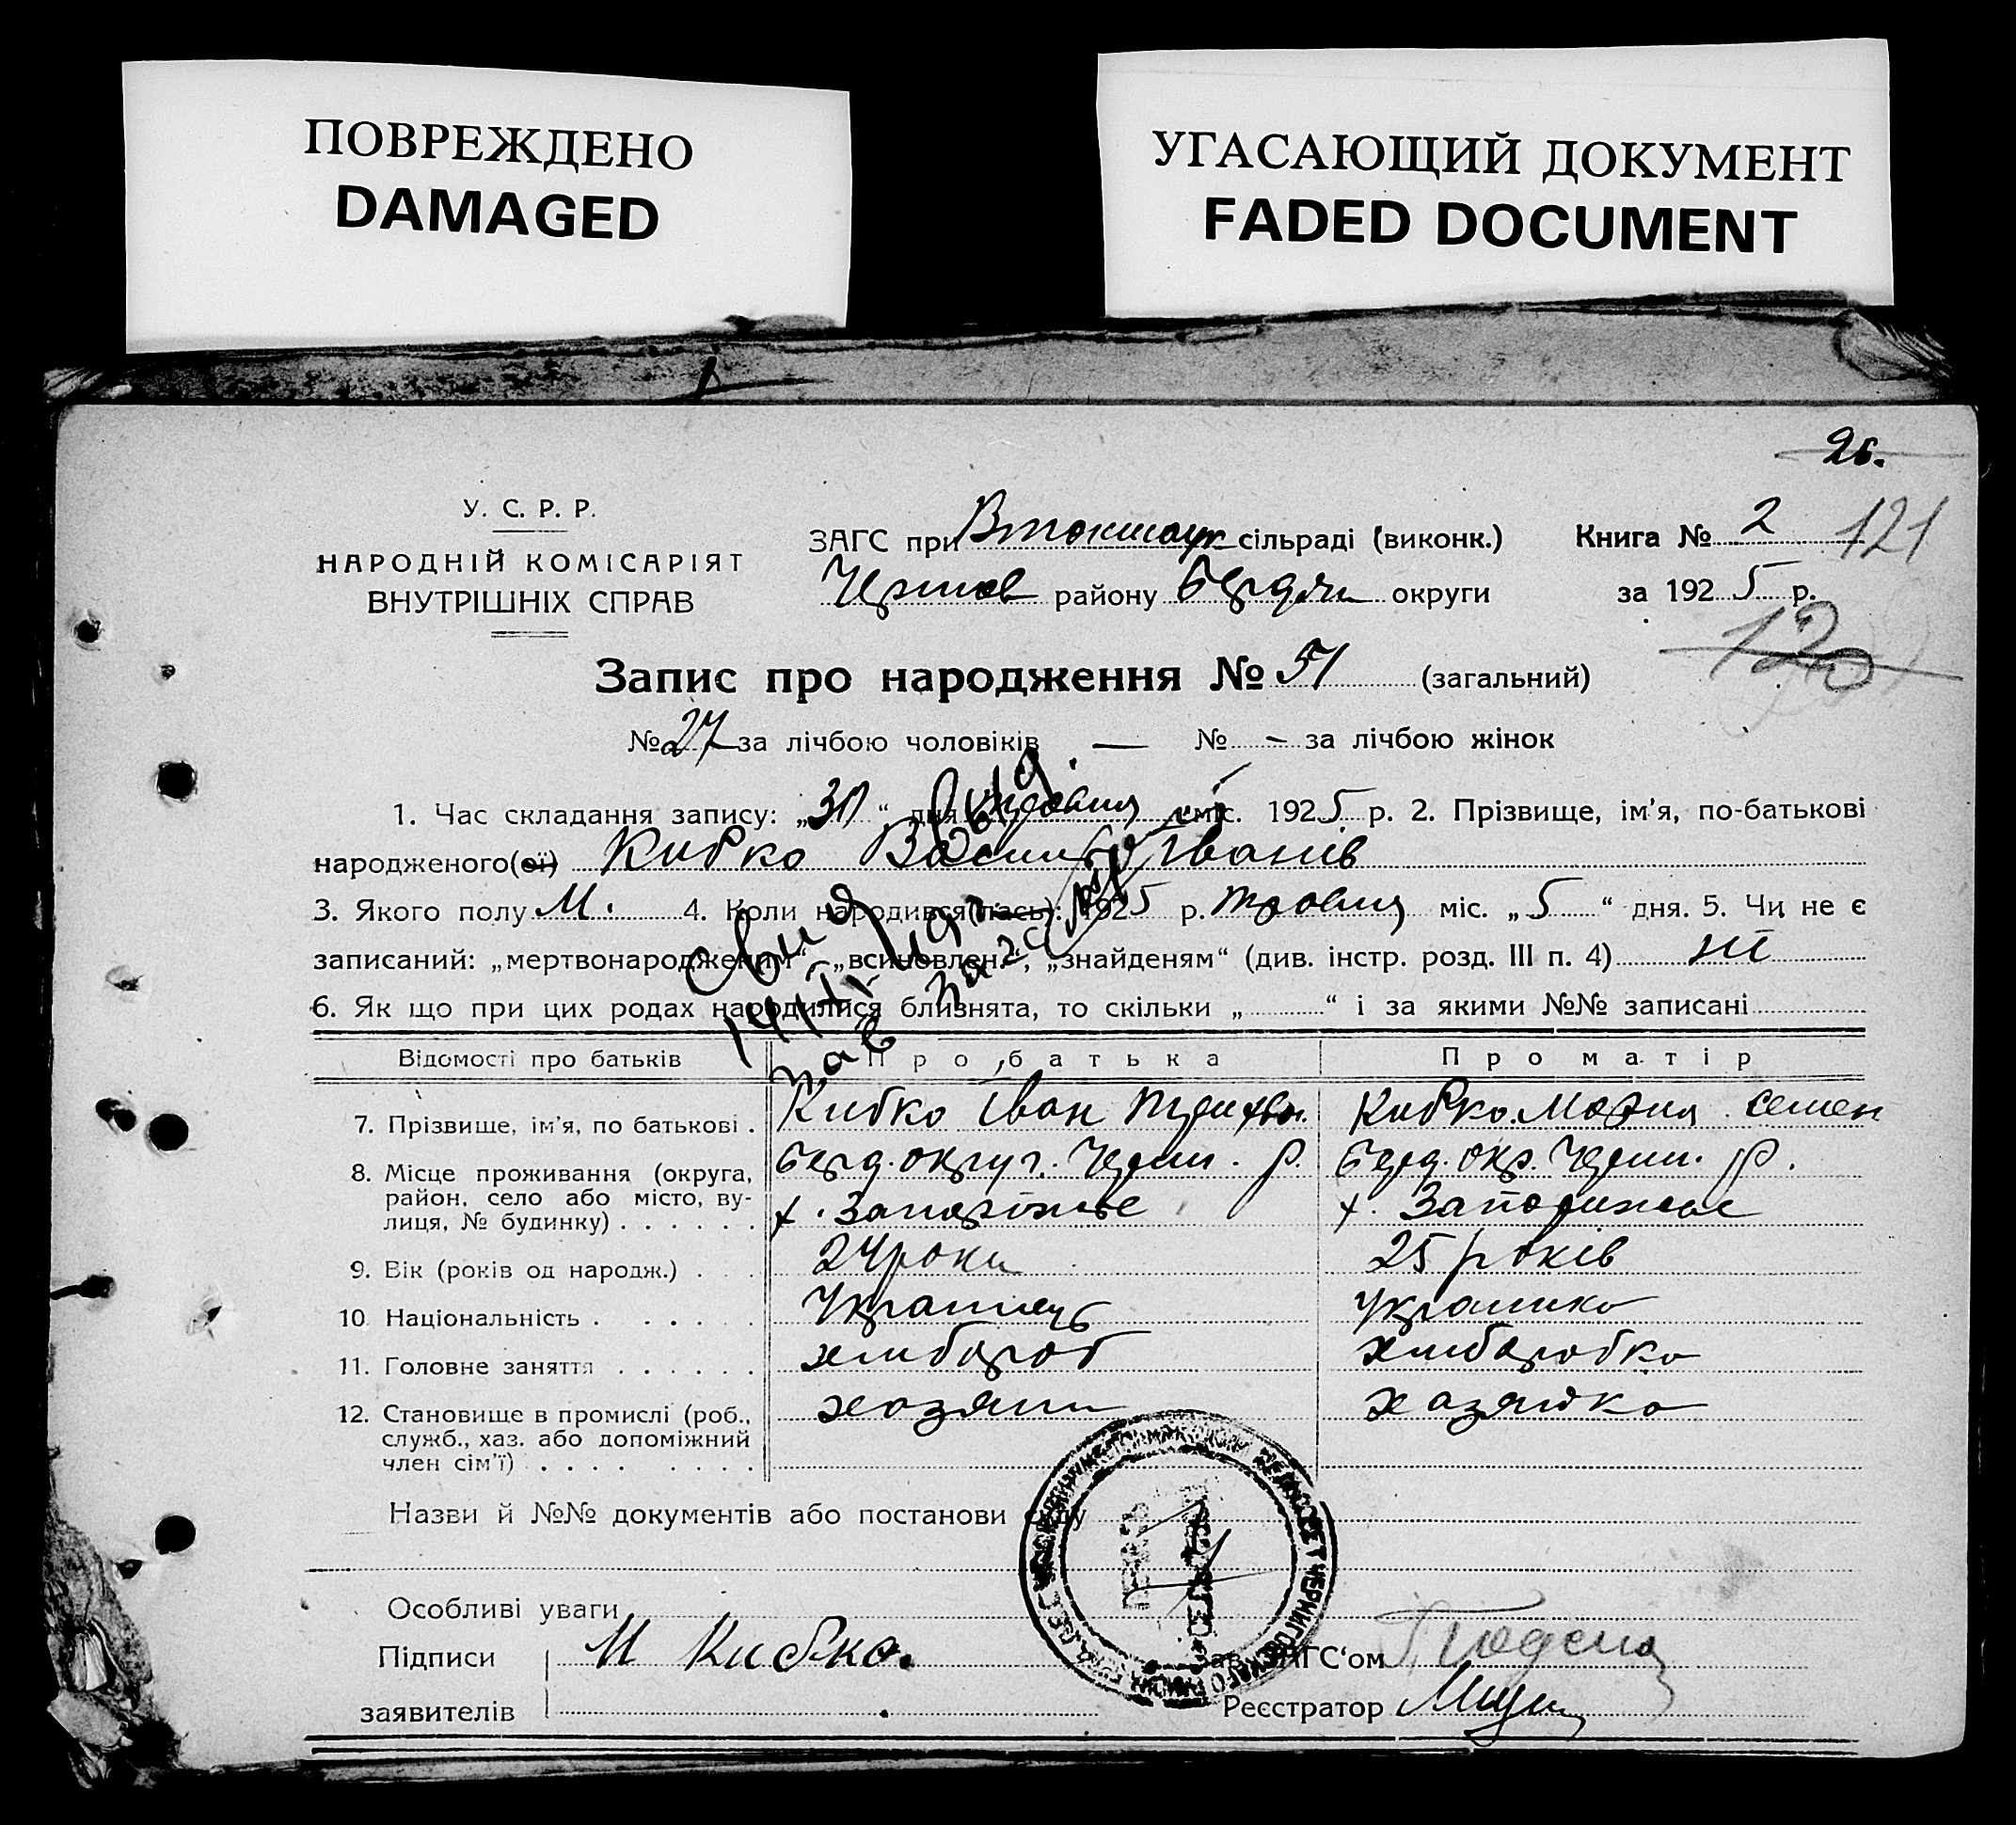 ПОВРЕЖДЕНО
DAMAGED
УГАСАЮЩИЙ ДОКУМЕНТ
FADED DOCUMENT
26.
У. С. Р. Р.
НАРОДНІЙ КОМІСАРІЯТ
ВНУТРІШНІХ СПРАВ
ЗАГС при Втокмацк сільраді (виконк.)
Черниг району Бердян округи
Книга № 2 121
за 1925 р.
120
Запис про народження № 51 (загальний)
№ 27 за лічбою чоловіків — № - за лічбою жінок
1. Час складання запису: „30“ дня травня міс. 1925 р. 2. Прізвище, ім'я, по-батькові
народженого(ої) Кибко Василь Іванів
3. Якого полу М. 4. Коли народився(лась): 1925 р. травня міс. „5“ дня. 5. Чи не є
записаний: „мертвонародженим“, „всиновлен.“, „знайденям“ (див. інстр. розд. III п. 4) ні
6. Як що при цих родах народилися близнята, то скільки „ “ і за якими №№ записані
Відомості про батьків
Про батька
Про матір
7. Прізвище, ім'я, по батькові .
Кибко Іван
Кибко Мария Семен
8. Місце проживання (округа,
район, село або місто, ву-
лиця, № будинку) . . . . . .
Берд. округ. Черниг. р.
х. Запоріжье
Берд. окр. Черниг. р.
х. Запорижье
9. Вік (років од народж.) . . .
24 роки
25 років
10. Національність . . . . . .
Українець
Українка
11. Головне заняття . . . . . .
хлібороб
хліборобка
12. Становище в промислі (роб.,
служб., хаз. або допоміжний
член сім'ї) . . . . . . . . .
хозяїн
хазяйка
Назви й №№ документів або постанови суду
Особливі уваги
Підписи
заявителів
И Кибко.
Зав. ЗАГС'ом
Реєстратор